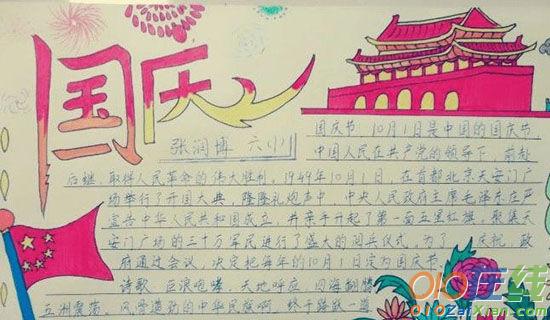 国庆
张润博 六(1)
国庆节 10月1日是中国的国庆节,
中国人民在共产党的领导下,前赴
后继,取得人民革命的伟大胜利,1949年10月1日,在首都北京天安门广
场举行了开国大典,隆隆礼炮声中,中央人民政府主席毛泽东庄严
宣告中华人民共和国成立,并亲手升起了第一面五星红旗,聚集天
安门广场的三十万军民进行了盛大的阅兵仪式,为了 庆祝,政
府通过会议,决定把每年的10月1日定为国庆节.
诗歌 巨浪咆哮,天地呼应,四海翻腾
五洲震荡,风雷激励的中华民族啊,终于踏破一道
在线
ZaiXian.com